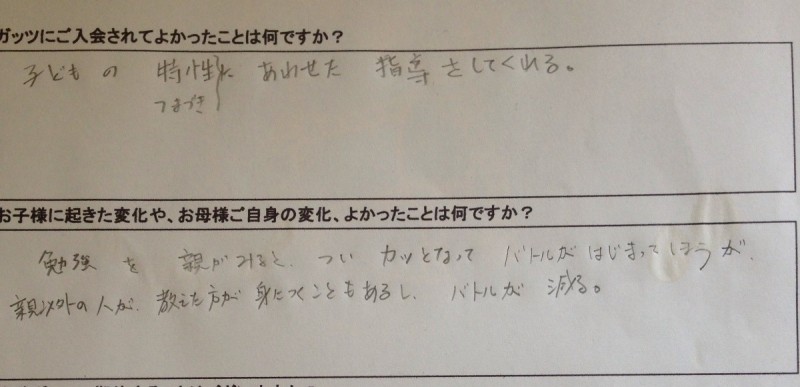 ガッツにご入会されてよかったことは何ですか？
子どもの 特性に あわせた 指導をしてくれる。
つまづき
お子様に起きた変化や、お母様ご自身の変化、よかったことは何ですか？
勉強を 親がみると、つい カッとなって バトルが はじまってしまうが、
親以外の人が、教えた方が 身につくこともあるし、バトルが 減る。